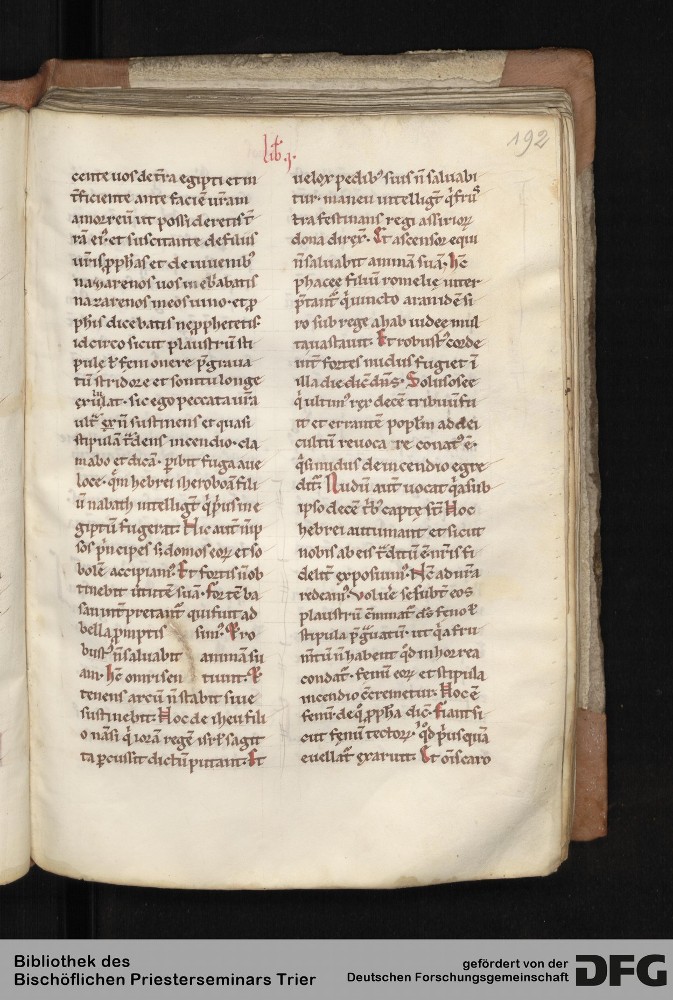 lib. i.
192
cente uos de tr̄a egipti et in
t̄ficiente ante faciē ur̄am
amorreū vt possideretis t̄
rā ei᷒. et suscitante de filiis
ur̄is ꝓphās et de iuuenib᷒
nazarenos uos inebꝛ̄abatis
nazarenos meos uino. et ꝓ
phis dicebatis ne ꝓphetetis.
idcirco sicut plaustrū sti
pule ł feni onere p̄graua
tū stridore et sonitu longe
sic ego peccata ur̄a
ult᷒ ex n̄ sustinens et quasi
stipulā t̄dens incendio. cla
mabo et dicā. ꝑibit fuga a ue
loce. qm̄ hebrei iheroboā fili
ū nabath intelligt̄ qͥ pͥus in e
giptū fugerat. Hic aut̄ n̄ ip
sos pͥncipes s; domos eoꝝ et so
bolē accipiam᷒. Et fortis n̄ ob
tinebit uirtutē suā. fortē ba
san int̄pretant᷒ qui fuit ad
bella ꝓmptis sim᷒. Et ro
bust᷒ n̄ saluabit animā su
am. hc̄ omri sen tiunt. Et
tenens arcū n̄ stabit siue
sustinebit. Hoc de iheu fili
o nāsi qͥ iorā regē isrł sagit
ta ꝑcussit dictū putant. Et
uelox pedib᷒ suis n̄ saluabi
tur. manen intelligt̄ qͥ fru
tra festinans regi assirioꝝ
dona direx̄. Et ascensor equi
n̄ saluabit animā suā. hc̄
phacee filiū romelie inter
p̄tant᷒ qͥ iuncto aramdē si
ro sub rege ahab iudee mul
ta uastauit. Et robust᷒ corde
int̄ fortes nudus fugiet ī
illa die dic̄ dn̄s. Solus osee
qͥ ultim᷒ rex decē tribuū fu
it et errantē popłm ad dei
cultū reuoca re conat᷒ ē.
qͣsi nudus de incendio egre
dit᷒. Nudū aut̄ uocat qͥa sub
ipso decē tͥb᷒ capte st̄. Hoc
hebrei autumant et sicut
nobis ab eis t̄ditū ē nr̄is fi
delit̄ exposuim᷒. Nc̄ ad nr̄a
redeam᷒. Volue se subt᷒ eos
plaustrū c̄minat᷒ ds̄ feno ł
stipula p̄gͣuatū. ut qͥa fru
m̄tū n̄ habent qd̄ in horrea
condat᷒. fenū eoꝝ et stipula
incendio c̄cremetur. Hoc ē
fenū de qͦ ꝓpha dic̄. fiant si
cut fenū tectoꝝ. qd̄ pͥusquā
euellat᷒ exaruit. Et oīs caro
Bibliothek des
Bischöflichen Priesterseminars Trier
gefördert von der
Deutschen Forschungsgemeinschaft
DFG